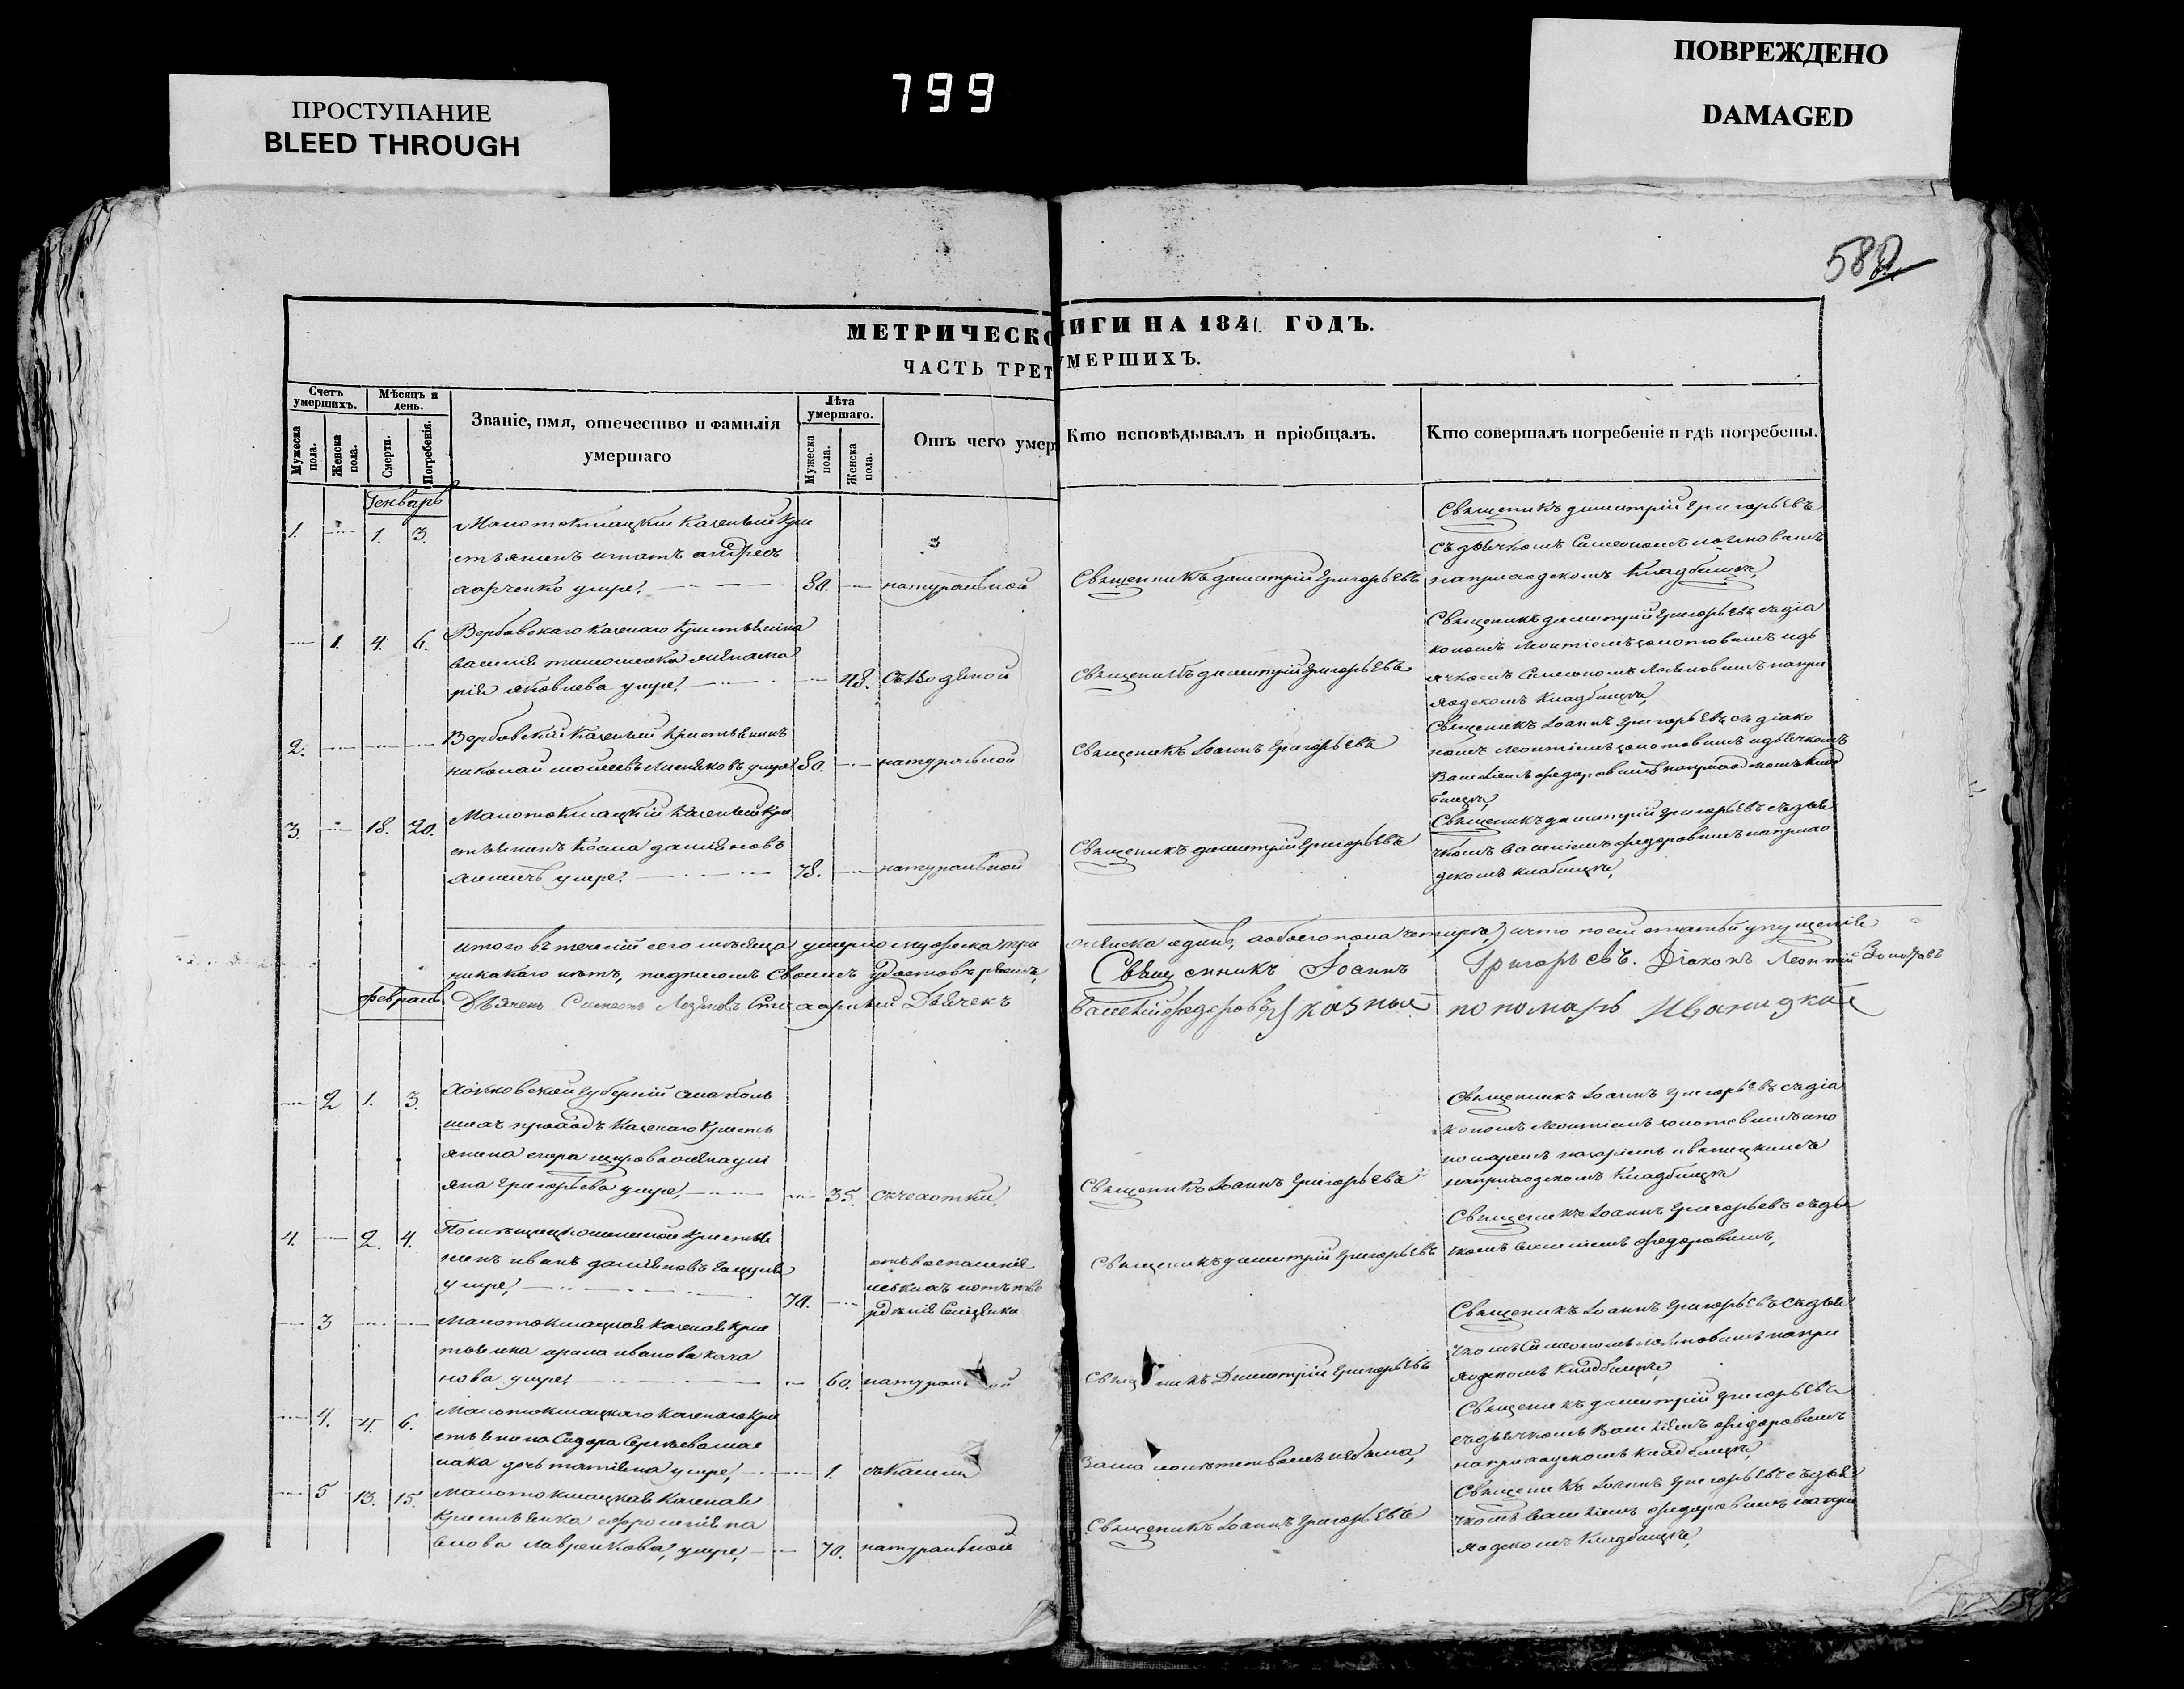 ПРОСТУПАНИЕ
BLEED THROUGH
799
ПОВРЕЖДЕНО
DAMAGED
580
МЕТРИЧЕСКО
НИГИ НА 1841 ГОДЪ.
ЧАСТЬ ТРЕТ
УМЕРШИХЪ.
Счетъ умершихъ.
Мужеска пола.
Женска пола.
Мѣсяцъ и день.
Смерти.
Погребенія.
Званіе, имя, отечество и фамилія
умершаго
Лѣта умершаго.
Мужеска пола.
Женска пола.
Отъ чего умер
Кто исповѣдывалъ и пріобщалъ.
Кто совершалъ погребеніе и гдѣ погребены.
Генварь
1. 1. 3. Малотокмацкій казенный кре
стьянинъ Андрей
харченко умре, 80. натуральной
Священникъ димитрій григорьевъ
Священикъ димитрій григорьевъ
съ дьячкомъ Симеономъ
наприходскомъ кладбищи,
1. 4. 6. Вербовскаго казенаго крестьянина
василія тимошенка жена ма
рія яковлева умре, 48. съ водяной
Священикъ димитрій григорьевъ
Священикъ димитрій григорьевъ съ діа
кономъ Леонтіемъ золотовымъ идь
ячкомъ Симеономъ напри
ходскомъ кладбищи,
2. Вербовскій казенный крестьянинъ
николай моисеевъ умре 80. натуральной
Священикъ Іоаннъ григорьевъ
Священикъ Іоаннъ григорьевъ съ діако
номъ Леонтіемъ золотовымъ идьячкомъ
Василіемъ федоровымъ наприходскомъ клад
бищи,
3. 18. 20. Малотокмацкій казенный кре
стьянинъ Косма даміановъ
умре. 78. натуральной
Священикъ димитрій григорьевъ
Священикъ димитрій григорьевъ съ дья
чкомъ василіемъ федоровымъ наприхо
дскомъ кладбищи,
итого въ теченіи сего мѣсяца умерло мужеска три
женска одинъ, аобоего пола четыре, ичто посей статьи упущенія
никакого нѣтъ, подписомъ своимъ удостовѣряемъ,
Священникъ Іоаннъ Григорьевъ. Діаконъ Леонтій Золотовъ
февраль
Дьячекъ Симеонъ Дьячекъ
Василій федоровъ Указный пономарь Иваницкій
2 1. 3. губерніи
приходъ казенаго кресть
янина егора жена
григорьева умре, 35. съ чахотки,
Священикъ Іоаннъ григорьевъ
Священникъ Іоаннъ григорьевъ съ діа
кономъ Леонтіемъ золотовымъ ипо
номаремъ иваницкимъ
наприходскомъ кладбищи
4. 2. 4. крестья
нинъ иванъ даміановъ
умре, 70. отъ воспаленія
Священикъ димитрій григорьевъ
Священикъ Іоаннъ григорьевъ съ дья
чкомъ василіемъ федоровымъ,
3 Малотокмацкая казеная крес
тьянка ивановa
умре, 60. натуральной
Священикъ Димитрій григорьевъ
Священикъ Іоаннъ григорьевъ съ дья
чкомъ Симеономъ напри
ходскомъ кладбищи,
4. 4. 6. Малотокмацкаго казенаго кре
стьянина Сидора
дочь татіяна умре, 1. съ кашли
За малолетствомъ небыла,
Священикъ димитрій григорьевъ
съ дьячкомъ Василіемъ федоровымъ
наприходскомъ кладбищи,
5 13. 15. Малотокмацкая казеная
крестьянка ефросинія па
влова лавренкова, умре, 70. натуральной
Священикъ Іоаннъ григорьевъ
Священикъ Іоаннъ григорьевъ съ дья
чкомъ Василіемъ федоровымъ напри
ходскомъ кладбищи,